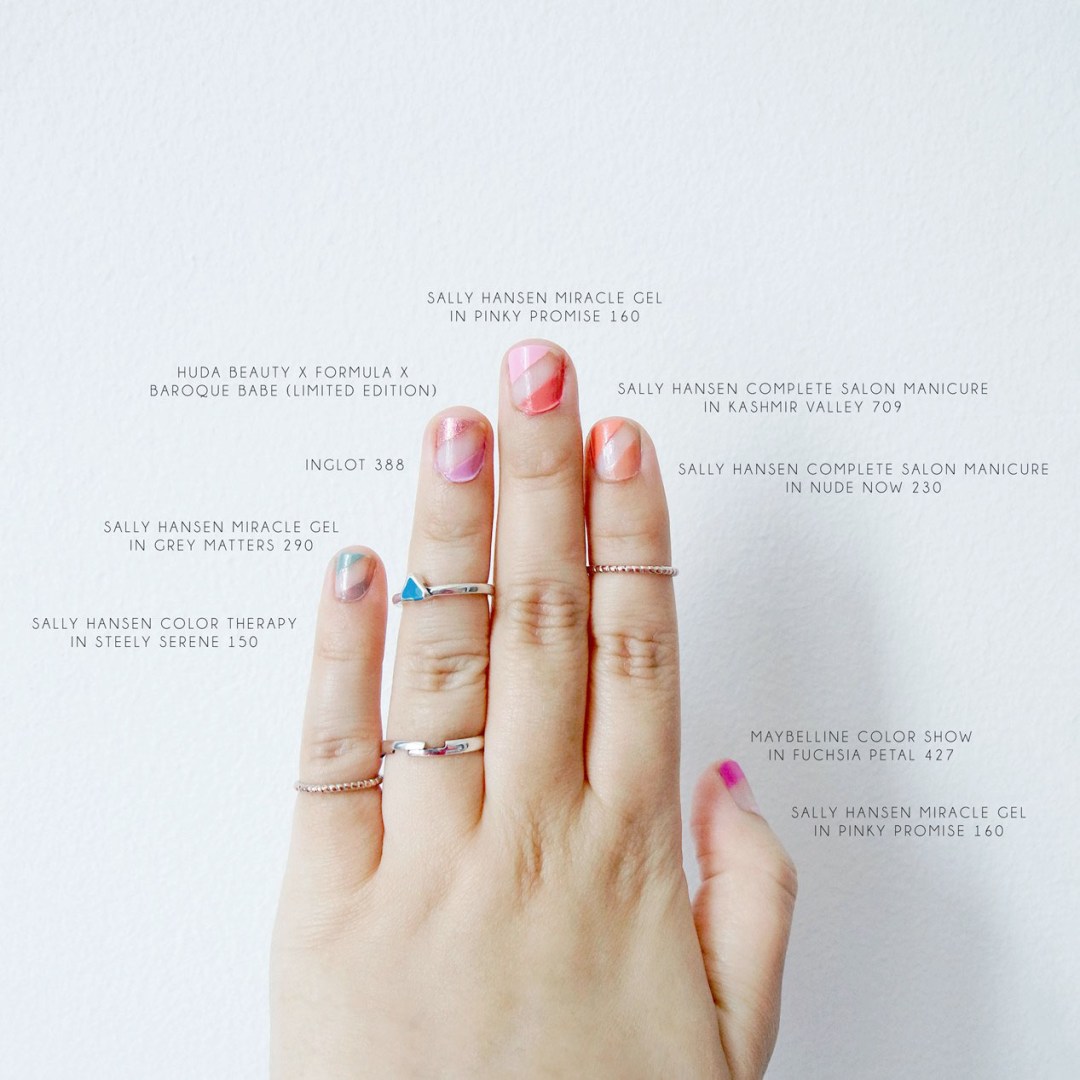 SALLY HANSEN MIRACLE GEL
IN PINKY PROMISE 160
HUDA BEAUTY X FORMULA X
BAROQUE BABE (LIMITED EDITION)
SALLY HANSEN COMPLETE SALON MANICURE
IN KASHMIR VALLEY 709
INGLOT 388
SALLY HANSEN COMPLETE SALON MANICURE
IN NUDE NOW 230
SALLY HANSEN MIRACLE GEL
IN GREY MATTERS 290
SALLY HANSEN COLOR THERAPY
IN STEELY SERENE 150
MAYBELLINE COLOR SHOW
IN FUCHSIA PETAL 427
SALLY HANSEN MIRACLE GEL
IN PINKY PROMISE 160